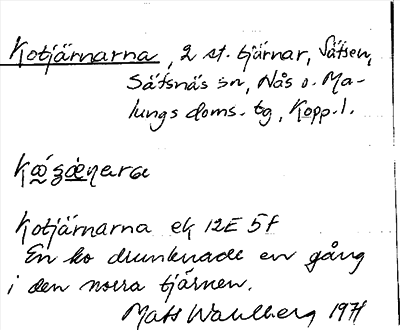 Kotjärnarna, 2 st. tjärnar, Sätsen,
Säfsnäs sn, Nås o. Ma-
lungs doms. tg, Kopp. l.
Kotjärnarna ek 12E 5f
En ko drunknade en gång
i den norra tjärnen.
Mats Wahlberg